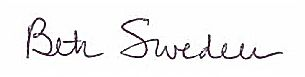 Beth Sweden